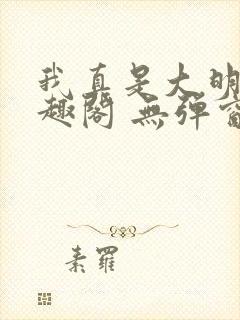 我真是大明
趣閣 無彈窗
素羅